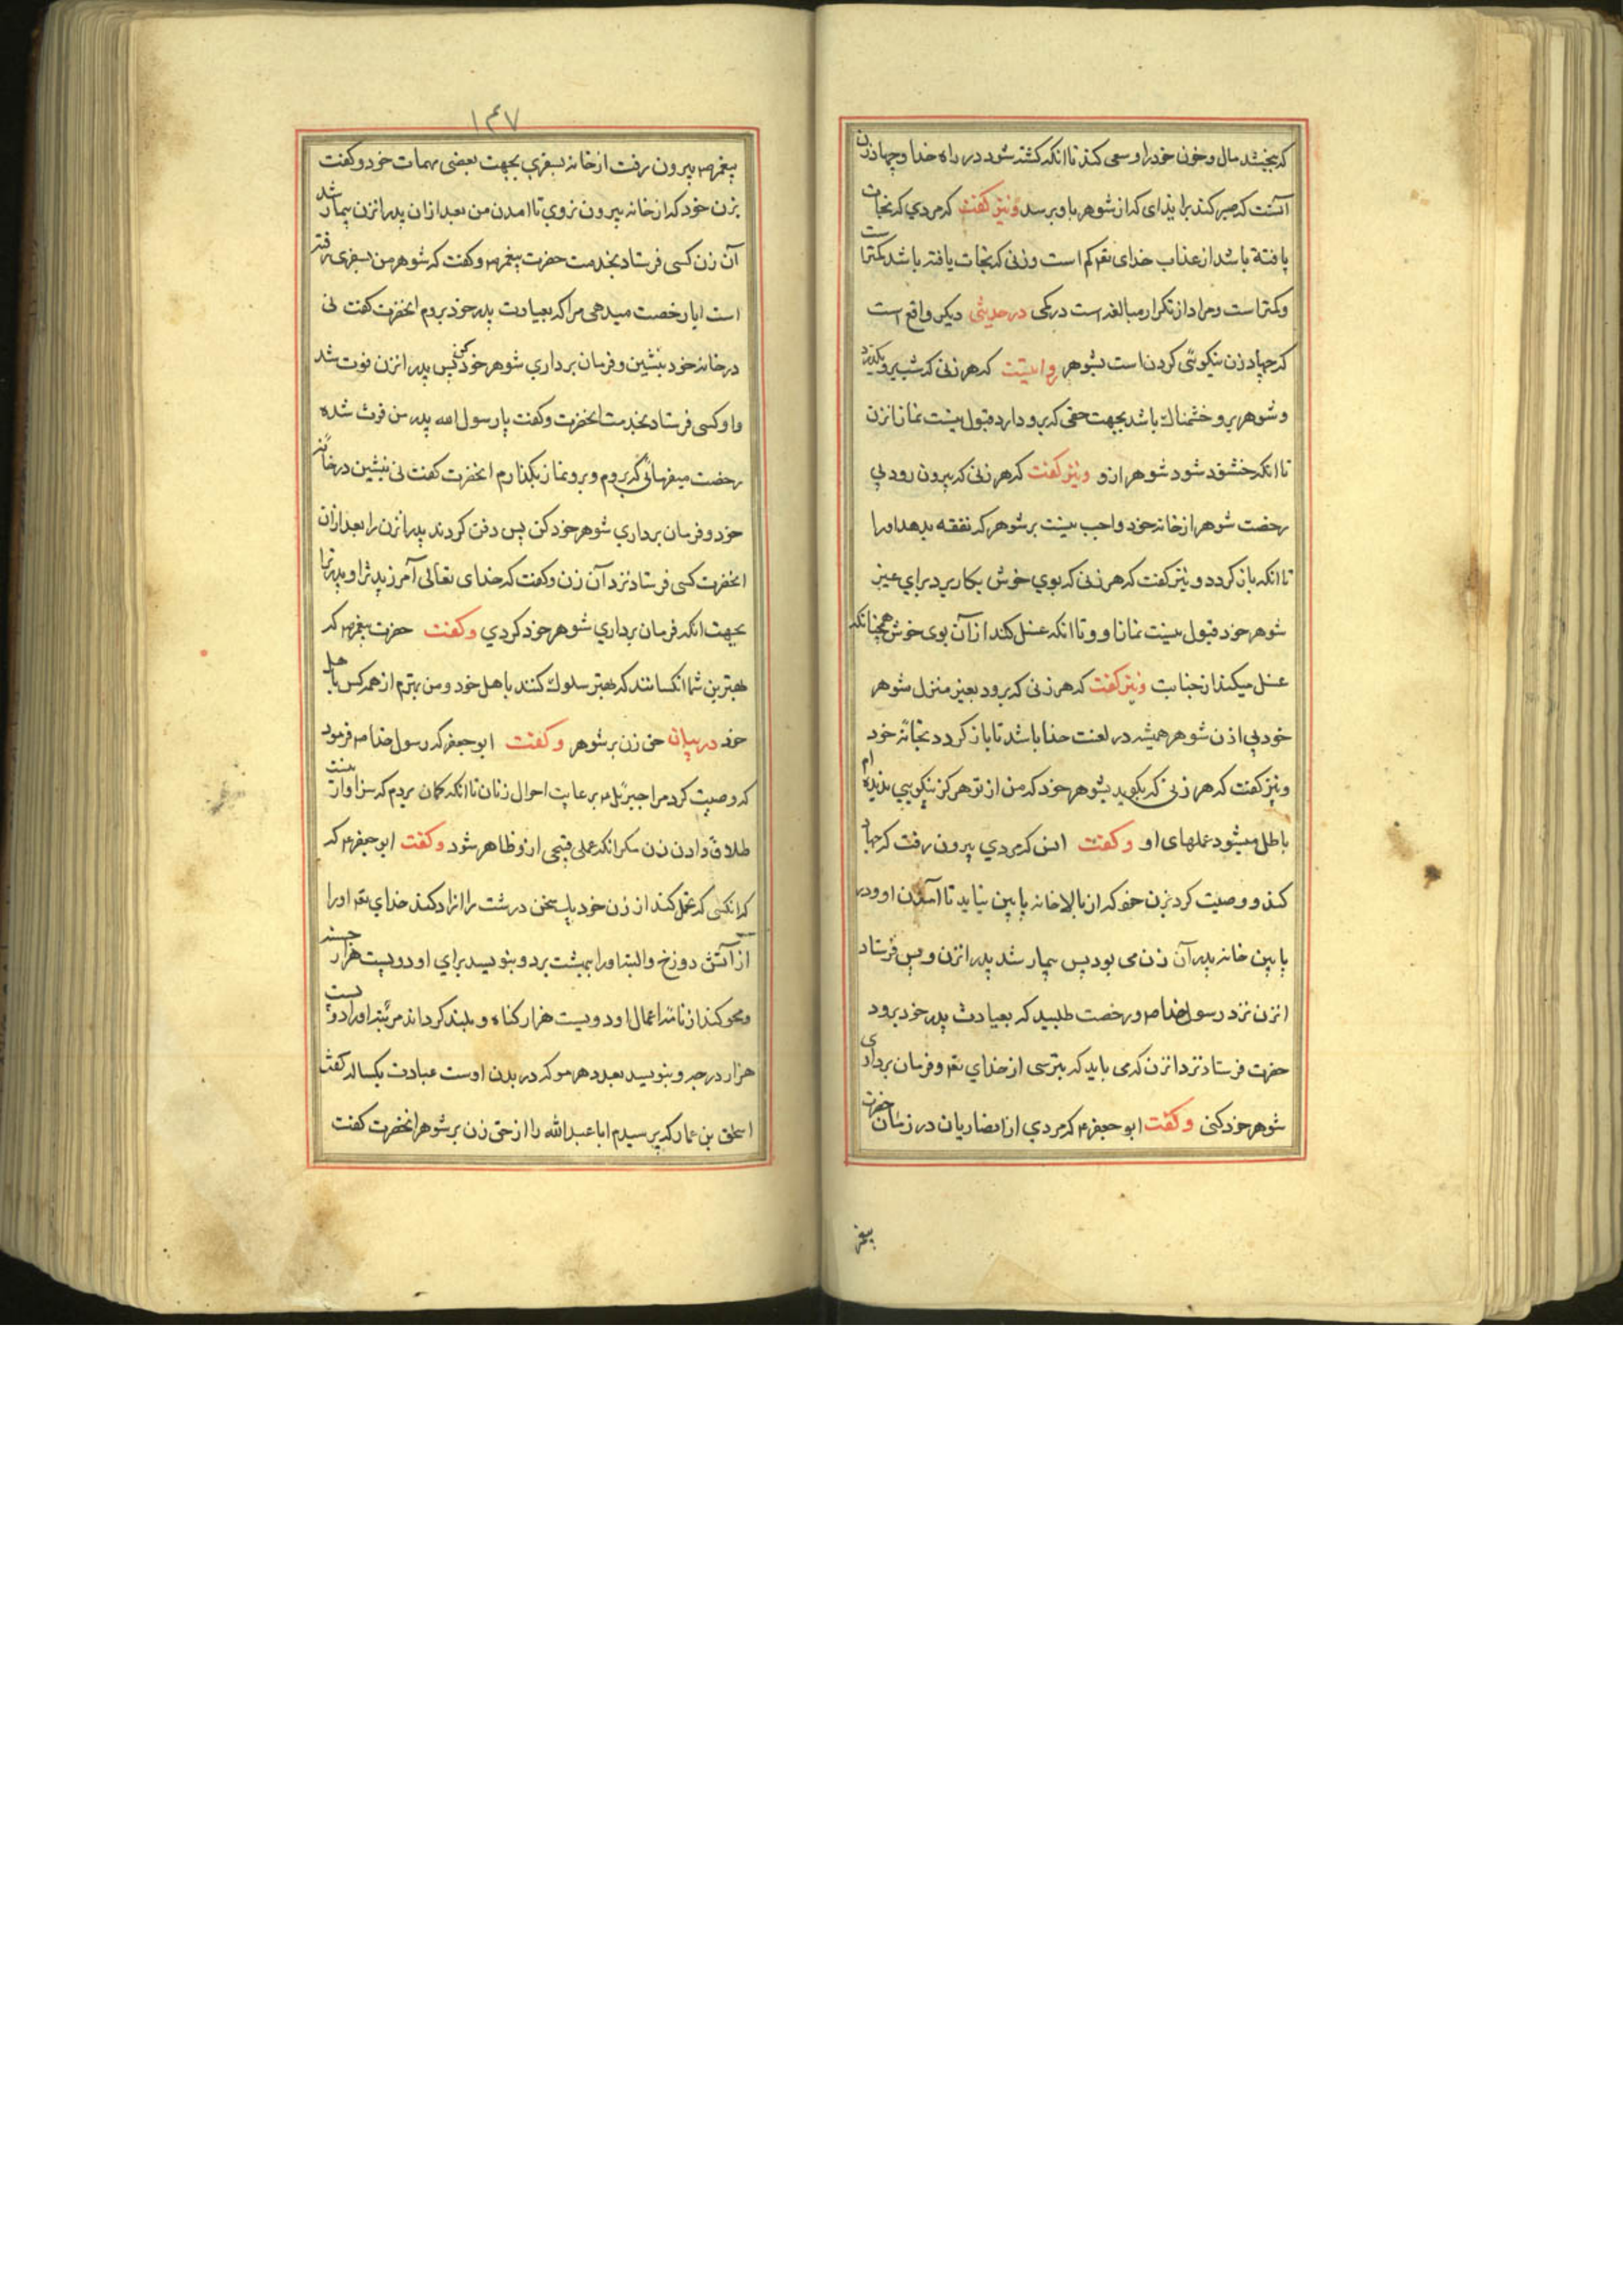 که بخشد مال و خون خود را و سعی کند تا انکه کشته شود در راه خدا و جهاد زن
آنست که صبر کند بر ایذای که از شوهر باو برسد و نیز کفت که مردی که نجات
یافتة باشد از عذاب خدای تعه کم است و زنی که نجات یافته باشد کمتر است
و کمتر است و مراد از تکرار مبالغه است در کمی در حدیثی دیکر واقع است
که جهاد زن نیکوئی کردن است بشوهر روایتست که هر زنی که شب برو بکذرد
و شوهر برو خشمناك باشد بجهت حقی که برو دارد قبول نیست نماز انزن
تا انکه خشنود شود شوهر ازو و نیز کفت که هر زنی که بیرون رود بی
رخصت شوهر از خانه خود واجب نیست بر شوهر که نفقه بدهد او را
تا انکه باز کردد و نیز کفت که هر زنی که بوی خوش بکار برد برای غیر
شوهر خود قبول نیست نماز او و تا انکه غسل کند از آن بوی خوش همچنانکه
غسل میکند از جنابت و نیز کفت که هر زنی که برود بغیر منزل شوهر
خود بی اذن شوهر همیشه در لعنت خدا باشد تا باز کردد بخانه خود
و نیز کفت که هر زنی که بکوید بشوهر خود که من از تو هرکز نیکویی ندیده ام
باطل میشود عملهای او و کفت انس که مردی بیرون رفت که جهاد
کند و وصیت کرد بزن خود که از بالا خانه پایین نیاید تا آمدن او و در
پایین خانه پدر آن زن می بود پس بیمار شد پدر انزن و پس فرستاد
انزن نزد رسول خدا صه و رخصت طلبید که بعیادت پدر خود برود
حضرت فرستاد نزد انزن که می باید که بترسی از خدای تعه و فرمان برداری
شوهر خود کنی و کفت ابو جعفر ع که مردی از انصاریان در زمان حضرت
پیغمبر
۱۴۷
پیغمبر صه بیرون رفت از خانه بسفری بجهت بعضی مهمات خود و کفت
بزن خود که از خانه بیرون نروی تا امدن من بعد از ان پدر انزن بیمار شد
آن زن کسی فرستاد بخدمت حضرت پیغمبر صه و کفت که شوهر من بسفری رفته
است ایا رخصت میدهی مرا که بعیادت پدر خود بروم انحضرت کفت نی
در خانه خود بنشین و فرمان برداری شوهر خود کن پس پدر انزن فوت شد
و او کسی فرستاد بخدمت انحضرت و کفت یا رسول الله پدر من فوت شده
رخصت میفرمائی که بروم و برو نماز بکذارم انحضرت کفت نی بنشین در خانه
خود و فرمان برداری شوهر خود کن پس دفن کردند پدر انزن را بعد از ان
انحضرت کسی فرستاد نزد آن زن و کفت که خدای تعالی آمرزید ترا و پدر ترا
بجهت انکه فرمان برداری شوهر خود کردی و کفت حضرت پیغمبر صه که
بهترین شما انکسانند که بهتر سلوك کنند باهل خود و من بهترم از همه کس باهل
خود در بیان حق زن بر شوهر و کفت ابو جعفر که رسول خدا صه فرمود
که وصیت کرد مرا جبرئیل ع برعایت احوال زنان تا انکه کمان بردم که سزاوار نیست
طلاق دادن زن مکر انکه عملی قبیحی ازو ظاهر شود و کفت ابو جعفر ع که
که انکسی که تحمل کند از زن خود یك سخن درشت را ازاد کند خدای تعه او را
از آتش دوزخ و البته او را ببهشت برد و بنویسد برای او دویست هزار حسنه
و محو کند از نامه اعمال او دویست هزار کناه و بلند کرداند مرتبه او را دویست
هزار درجه و بنویسد بعدد هر مو که در بدن اوست عبادت یکساله کفت
اسحق بن عمار که پرسیدم ابا عبد الله را از حق زن بر شوهر انحضرت کفت